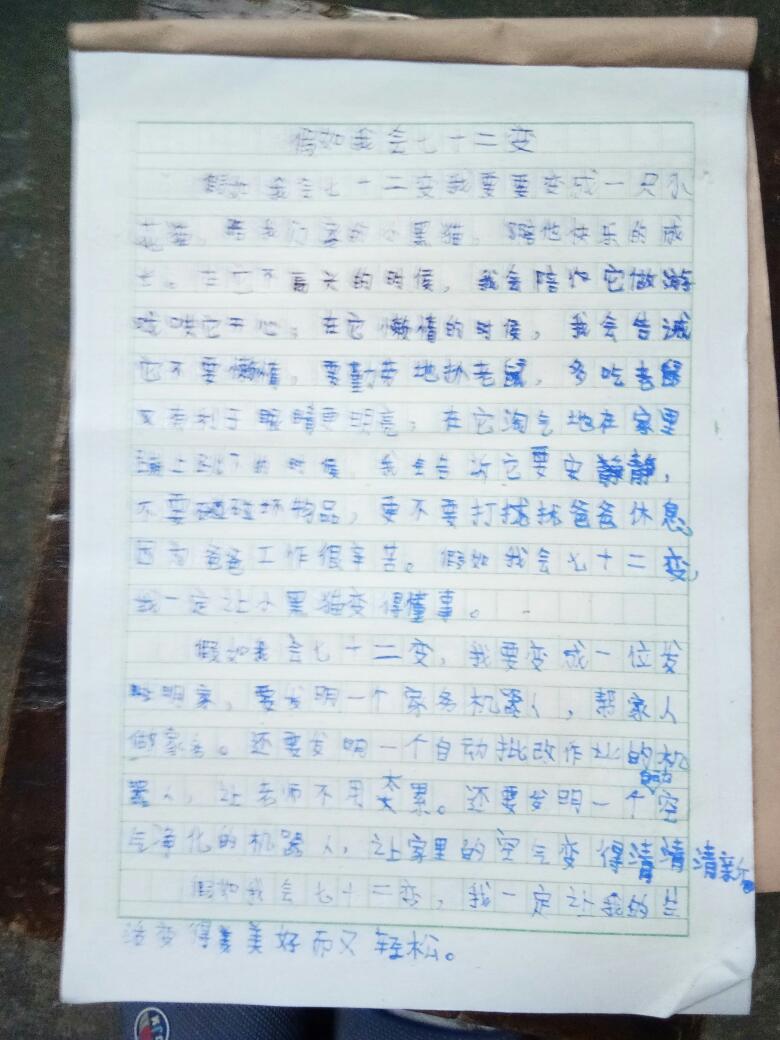 假如我会七十二变
假如我会七十二变我要变成一只小
花猫,陪我们家的小黑猫,快乐的成
长。在它不高兴的时候,我会陪它做游
戏哄它开心。在它懒惰的时候,我会告诫
它不要懒惰,要勤劳地抓老鼠,多吃老鼠
又有利于眼睛更明亮;在它淘气地在家里
的时候,我会告诉它要安静,
不要碰坏物品,更不要打扰爸爸休息,
因为爸爸工作很辛苦。假如我会七十二变,
我一定让小黑猫变得懂事。
假如我会七十二变,我要变成一位发
明家,要发明一个家务机器人,帮家人
做家务。还要发明一个自动批改作业的机
器人,让老师不用太累。还要发明一个空
气净化的机器人,让家里的空气变得清新
假如我会七十二变,我一定让我的生
活变得美好而又轻松。